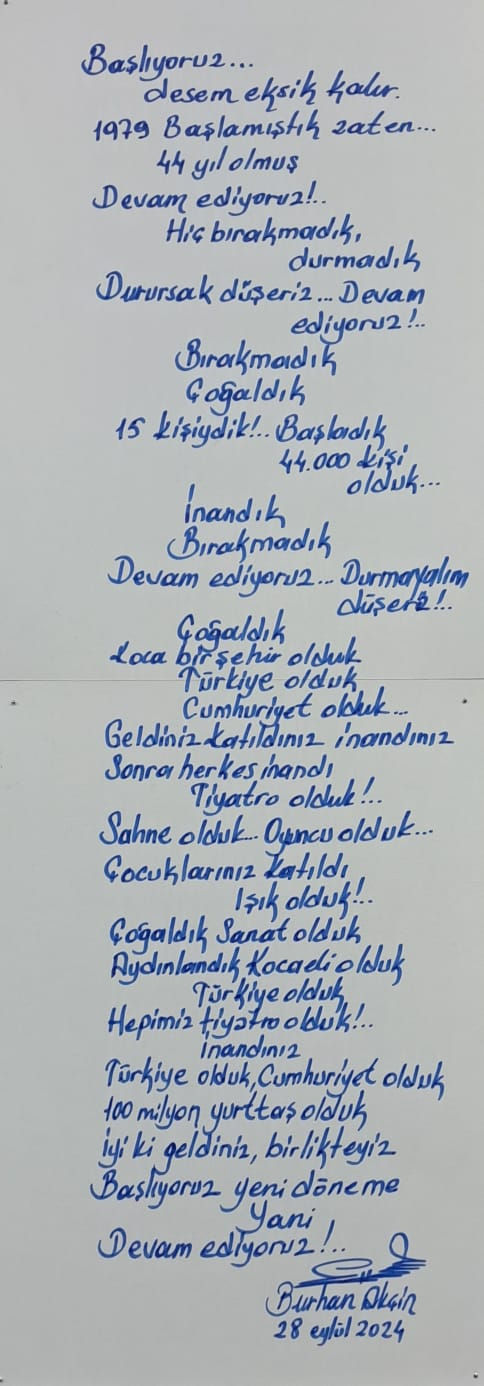 Başlıyoruz...
desem eksik kalır.
1979 Başlamıştık zaten...
44 yıl olmuş
Devam ediyoruz!..
Hiç bırakmadık,
durmadık
Durursak düşeriz... Devam
ediyoruz!..
Bırakmadık
Çoğaldık
15 kişiydik!.. Başladık
44.000 kişi
olduk...
İnandık
Bırakmadık
Devam ediyoruz... Durmayalım
düşeriz!..
Çoğaldık
Koca bir şehir olduk
Türkiye olduk
Cumhuriyet olduk...
Geldiniz katıldınız inandınız
Sonra herkes inandı
Tiyatro olduk!..
Sahne olduk... Oyuncu olduk...
Çocuklarınız katıldı
Işık olduk!..
Çoğaldık Sanat olduk
Aydınlandık Kocaeli olduk
Türkiye olduk
Hepimiz tiyatro olduk!..
İnandınız
Türkiye olduk, Cumhuriyet olduk
100 milyon yurttaş olduk
İyi ki geldiniz, birlikteyiz
Başlıyoruz yeni döneme
Yani
Devam ediyoruz!..
Burhan Akçin
28 eylül 2024